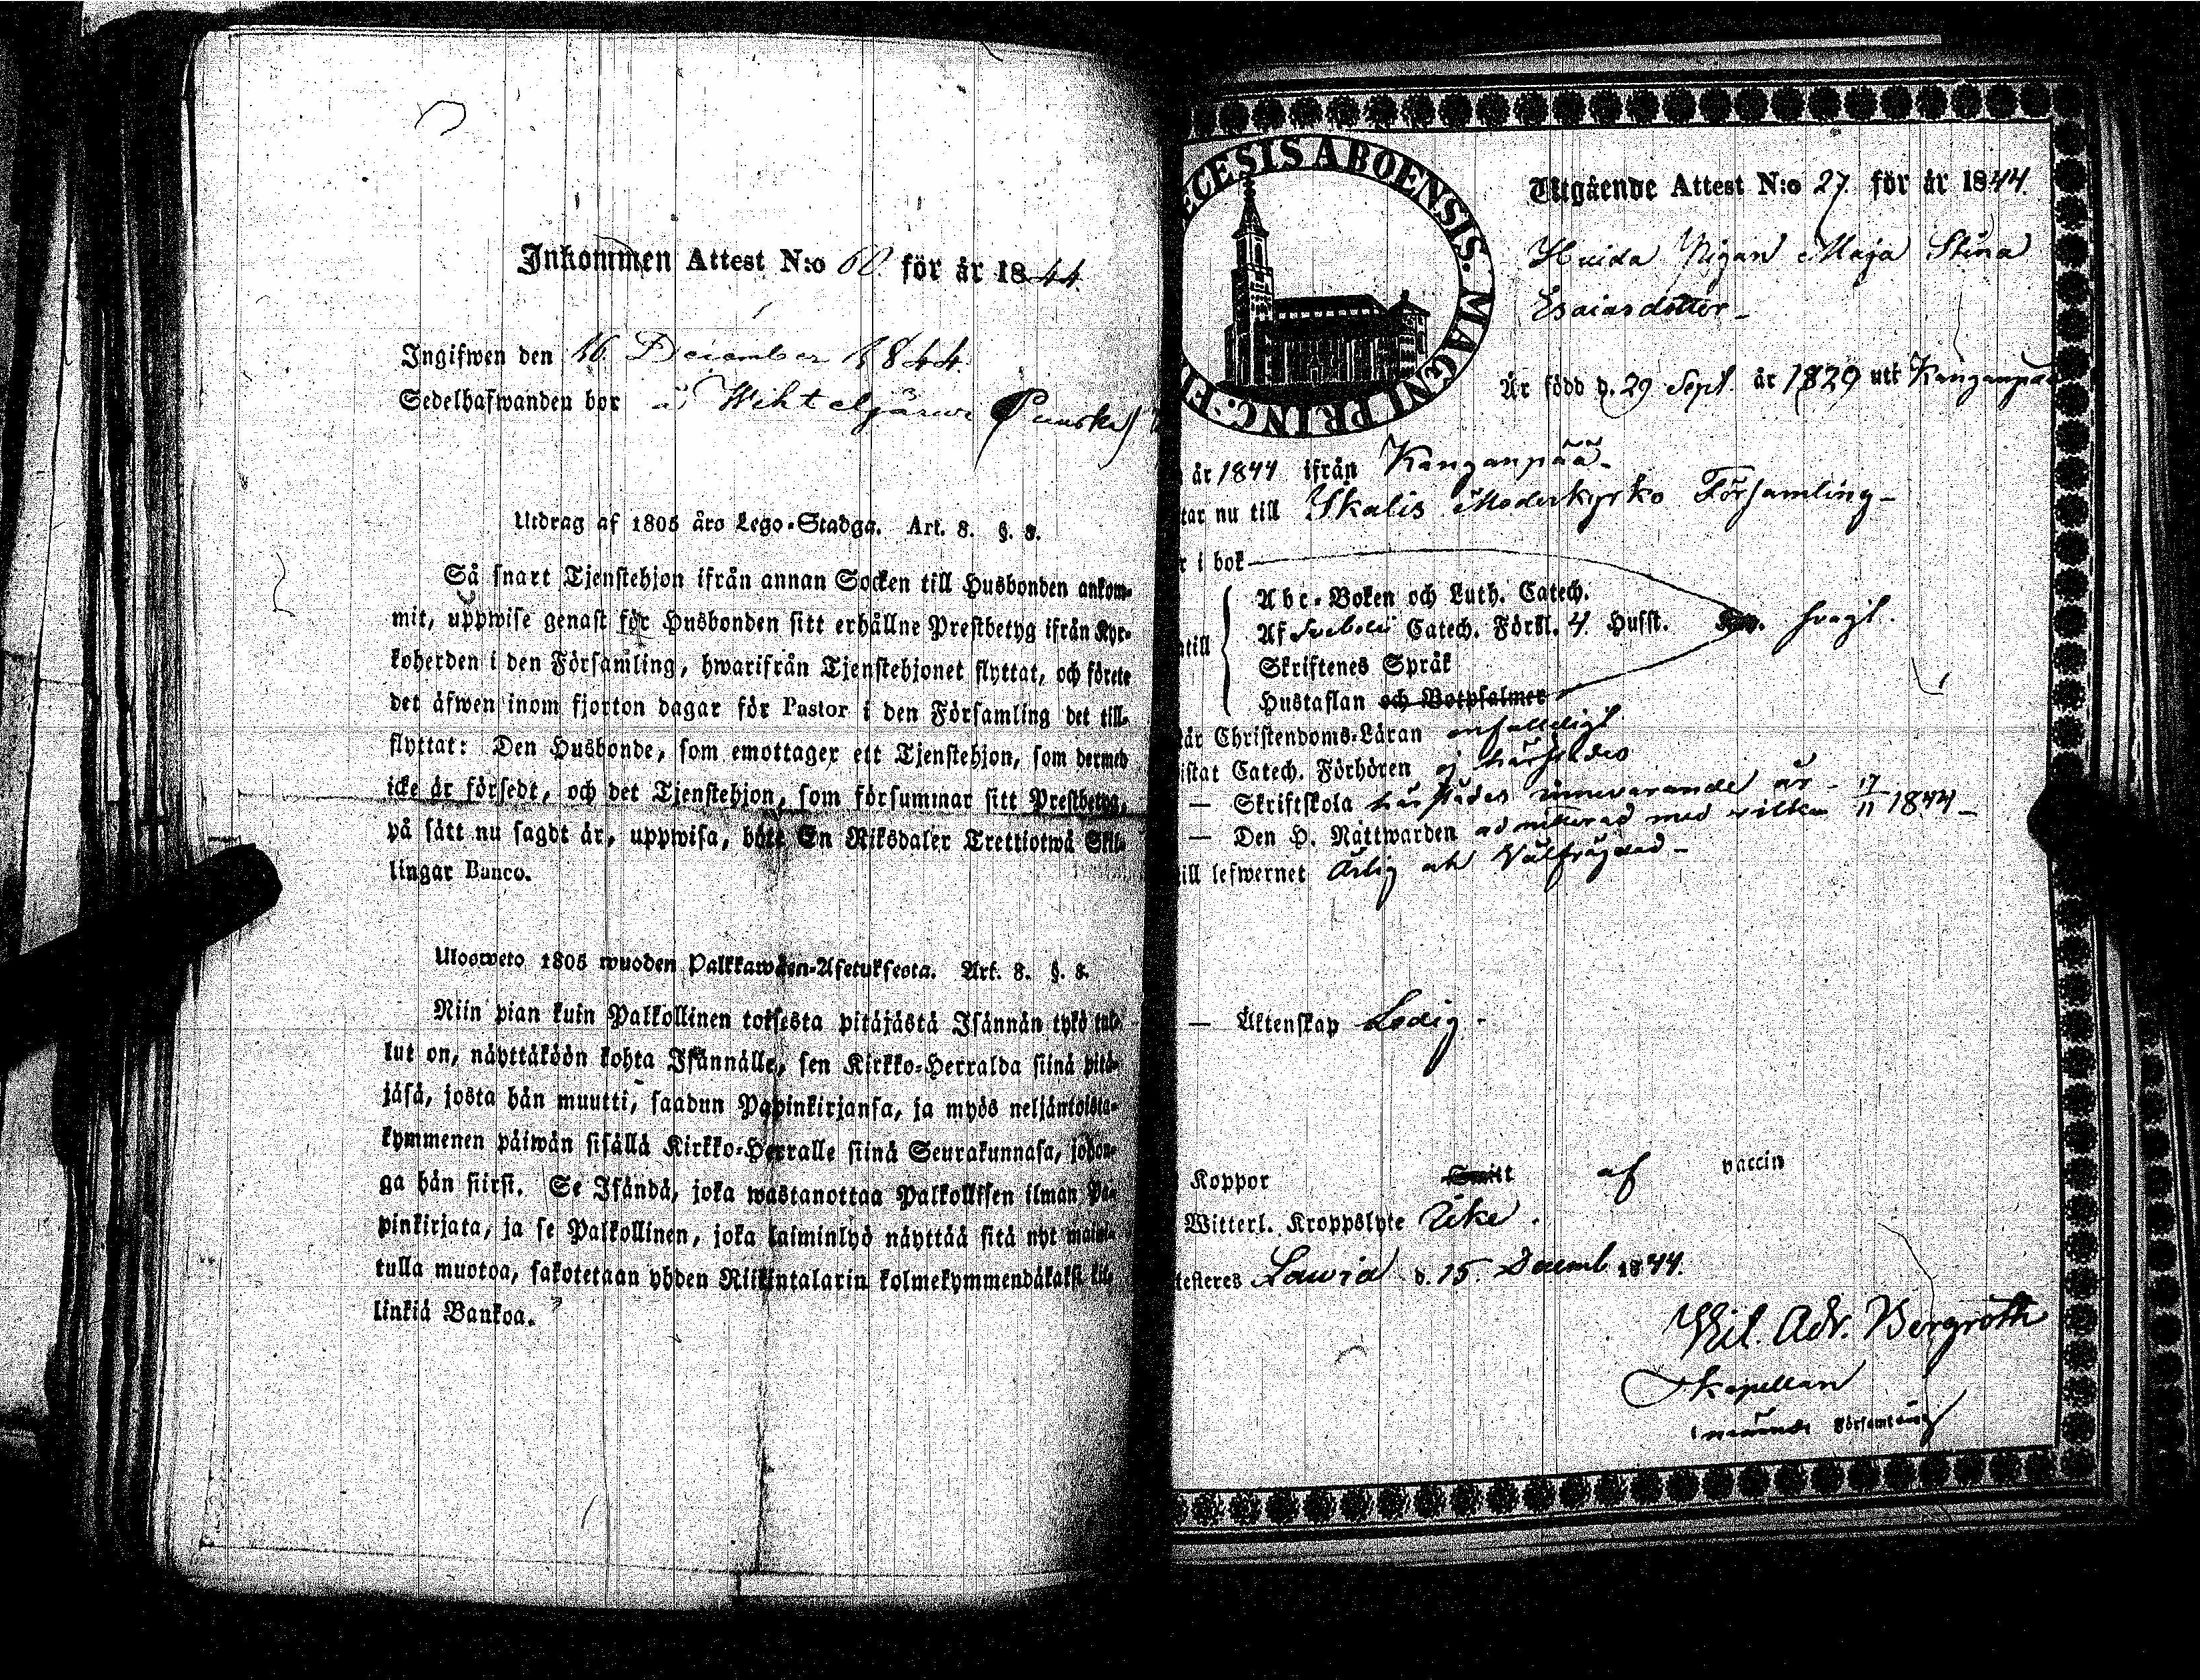 Inkommen Attest N:o 60 för år 1844.
Ingifwen den 16 December 1844.
Sedelhafwanden bor å Wihteljärwi (Punska)
Utdrag af 1805 års Lego-Stadga. Art. 8. §. 8.
Så snart Tjenstehjon ifrån annan Socken till Husbonden ankom-
mit, uppwise genast för Husbonden sitt erhållne Prestbetyg ifrån Kyr-
koherden i den Församling, hwarifrån Tjenstehjonet flyttat, och förete
det äfwen inom fjorton dagar för Pastor i den Församling det till-
flyttat: Den Husbonde, som emottager ett Tjenstehjon, som dermed
icke är försedt, och det Tjenstehjon, som försummar sitt Prestbetyg,
på sätt nu sagdt är, uppwisa, böte En Riksdaler Trettiotwå Skil-
lingar Banco.
Ulosweto 1805 wuoden Palkkawäen-Asetuksesta. Art. 8. §. 8.
Niin pian kuin Palkollinen toisesta pitäjästä Isännän tykö tul-
lut on, näyttäköön kohta Isännälle, sen Kirkko-Herralda siinä pitä-
jäsä, josta hän muutti, saadun Papinkirjansa, ja myös neljäntoista-
kymmenen päiwän sisällä Kirkko-Herralle siinä Seurakunnasa, johon-
ga hän siirsi. Se Isändä, joka wastanottaa Palkollisen ilman Pa-
pinkirjata, ja se Palkollinen, joka laiminlyö näyttää sitä nyt maini-
tulla muotoa, sakotetaan yhden Riikintalarin kolmekymmendäkaksi kil-
linkiä Bankoa.
ECESIS ABOENSIS. MAGNI PRINC. FI
Utgående Attest N:o 27 för år 1844.
Huida Pigan Maja Stina
Esaiasdotter
Är född d. 29 Sept. år 1829 uti Kanganpää
år 1844 ifrån Kanganpää
tar nu till Ikalis Moderkyrko Församling
r i bok
Abc-Boken och Luth. Catech.
atill Af Svebelii Catech. Förkl. 4 Hufst. svagt.
Skriftenes Språk
Hustaflan och Botpsalmer
år Christendoms-Läran enfalldigt
istat Catech. Förhören ej härstädes
— Skriftskola härstädes innevarande år 17/11 1844
— Den H. Nattwarden admitterad med
ill lefwernet Ärlig och Välfrägdad
— Äktenskap Ledig.
Koppor Smitt af vaccin
Witterl. Kroppslyte Icke.
testeres Lawia d. 15 Decemb 1844.
Wil. Adr. Bergroth
Kapellan